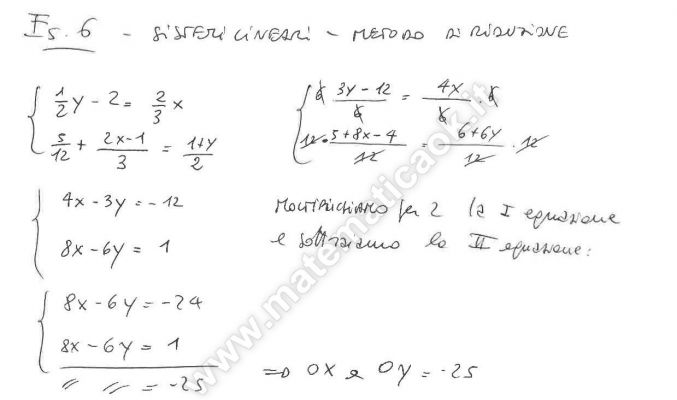 Es. 6 - SISTEMI LINEARI - METODO DI RIDUZIONE
1/2 y - 2 = 2/3 x
5/12 + (2x-1)/3 = (1+y)/2
6 (3y-12)/6 = 4x/6 · 6
12 · (5+8x-4)/12 = (6+6y)/12 · 12
4x - 3y = -12
8x - 6y = 1
MOLTIPLICHIAMO per 2 la I equazione
e sottraiamo la II equazione:
8x - 6y = -24
8x - 6y = 1
// // = -25
=> 0x e 0y = -25
www.matematicaok.it